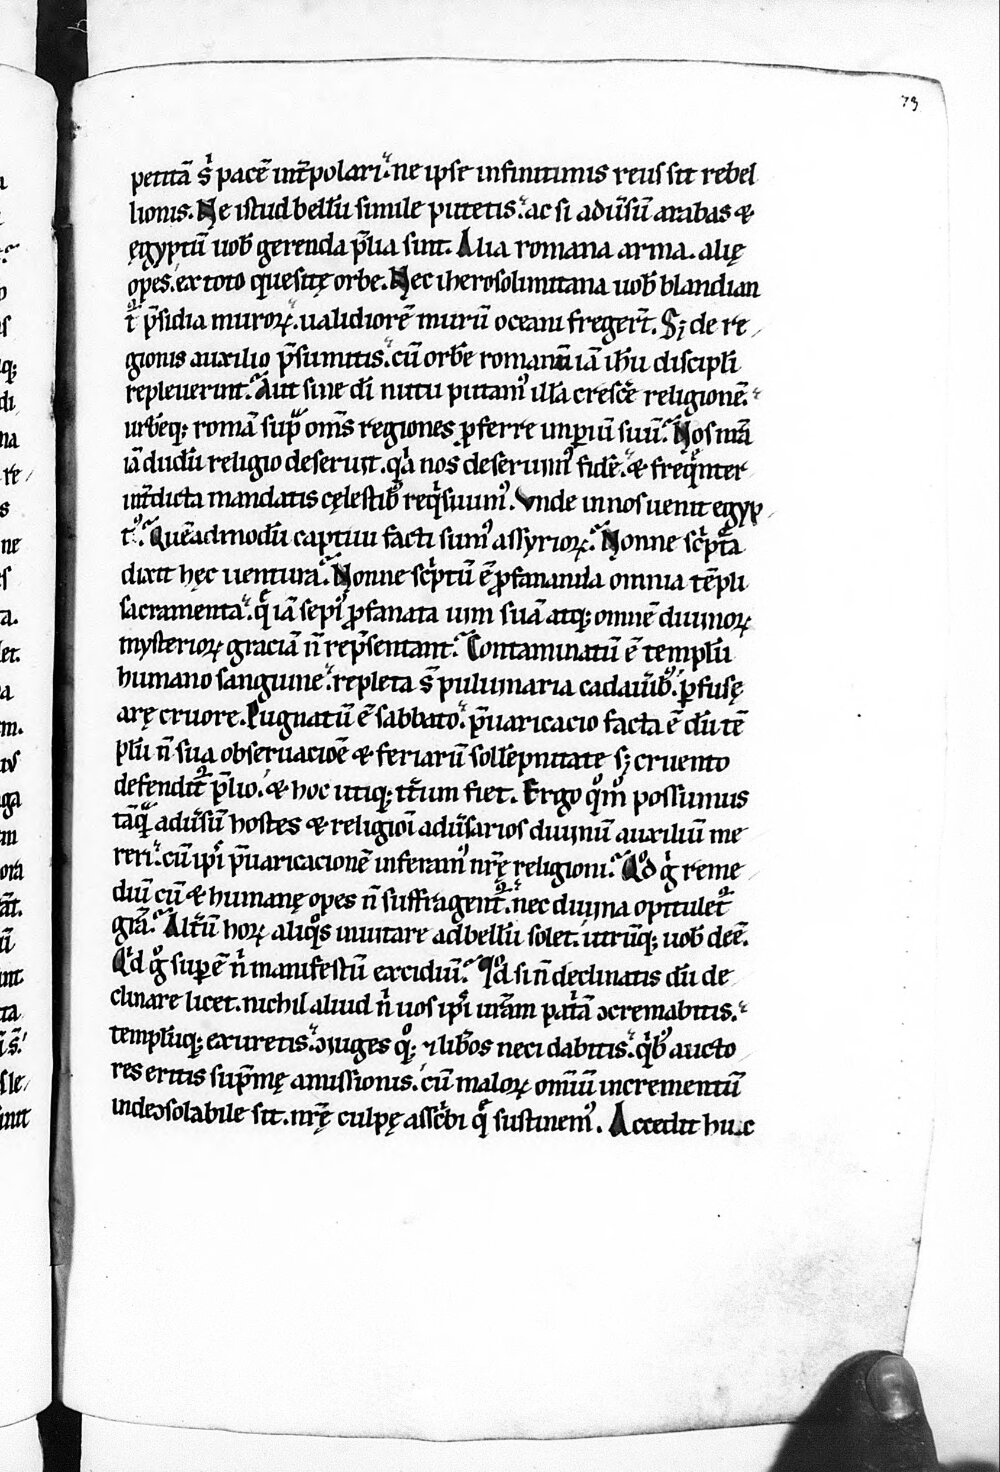 73
petitā s; pacē int̄polari. ne ipse infinitimis reus sit rebel
lionis. Ne istud bellū simile putetis. ac si adūsū arabas &
ęgyptū uob̄ gerenda p̄lia sunt. Alia romana arma. alię
opes. ex toto quesitę orbe. Nec iherosolimitana uob̄ blandian
t̄ p̄sidia muroꝝ. ualidiorē murū oceani fregert̄. S; de re
gionis auxilio p̄sumitis. cū orbē romanū iā ih̄u discipli
repleuerint. Aut sine dī nutu putam᾽ illā crescē religionē.
urbēq; romā sup̄ om̄s regiones ꝓferre inꝑiū suū. Nos mā
iā dudū religio deserūt. qa nos deseruim᾽ fidē. & freq̄nter
int̄dicta mandatis cęlestib᾽ req̄siuim᾽. Vnde in nos uenit egyp
t᾽. Quēadmodū captiui facti sum᾽ assyrioꝝ. Nonne sc̄pta
dixit hęc uentura. Nonne sc̄ptū ē ꝓfananda omnia tēpli
sacramenta. q̄ iā sepi᾽ ꝓfanata uim suā atq; omnē diuinoꝝ
mysterioꝝ graciā n̄ rep̄sentant. Contaminatū ē templū
humano sanguine. repleta s̄ puluinaria cadauīb᾽. ꝑfusę
arę cruore. Pugnatū ē sabbato. p̄uaricacio facta ē dū tē
plū n̄ sua obseruacioē & feriarū sollēpnitate s; cruento
defendit᾽ p̄lio. & hoc utiq; it̄um fiet. Ergo q̊m̊ possumus
tāq̄ adūsū hostes & religiōi adūsarios diuinū auxiliū me
reri. cū ipi p̄uaricacionē inferam᾽ nr̄ę religioni. Qd g̊ reme
diū cū & humanę opes n̄ suffragent᾽. nec diuina opitulet᾽
gr̄a. Alt̄ū hoꝝ aliq̊s inuitare ad bellū solet. utrūq; uob̄ deē.
Qd g̊ supē n̄ manifestū excidiū. Qd si n̄ declinatis dū de
clinare licet. nichil aliud n̄ uos ipi ur̄am pat̄ā ɔcremabitis.
templūq; exuretis. ɔiuges q̊; ⁊ lib̄os neci dabitis. q̄b᾽ aucto
res eritis sup̄mę amissionis. cū maloꝝ omīū incrementū
indeɔsolabile sit. nr̄ę culpę assc̄bi q̄ sustinem᾽. Accedit huic